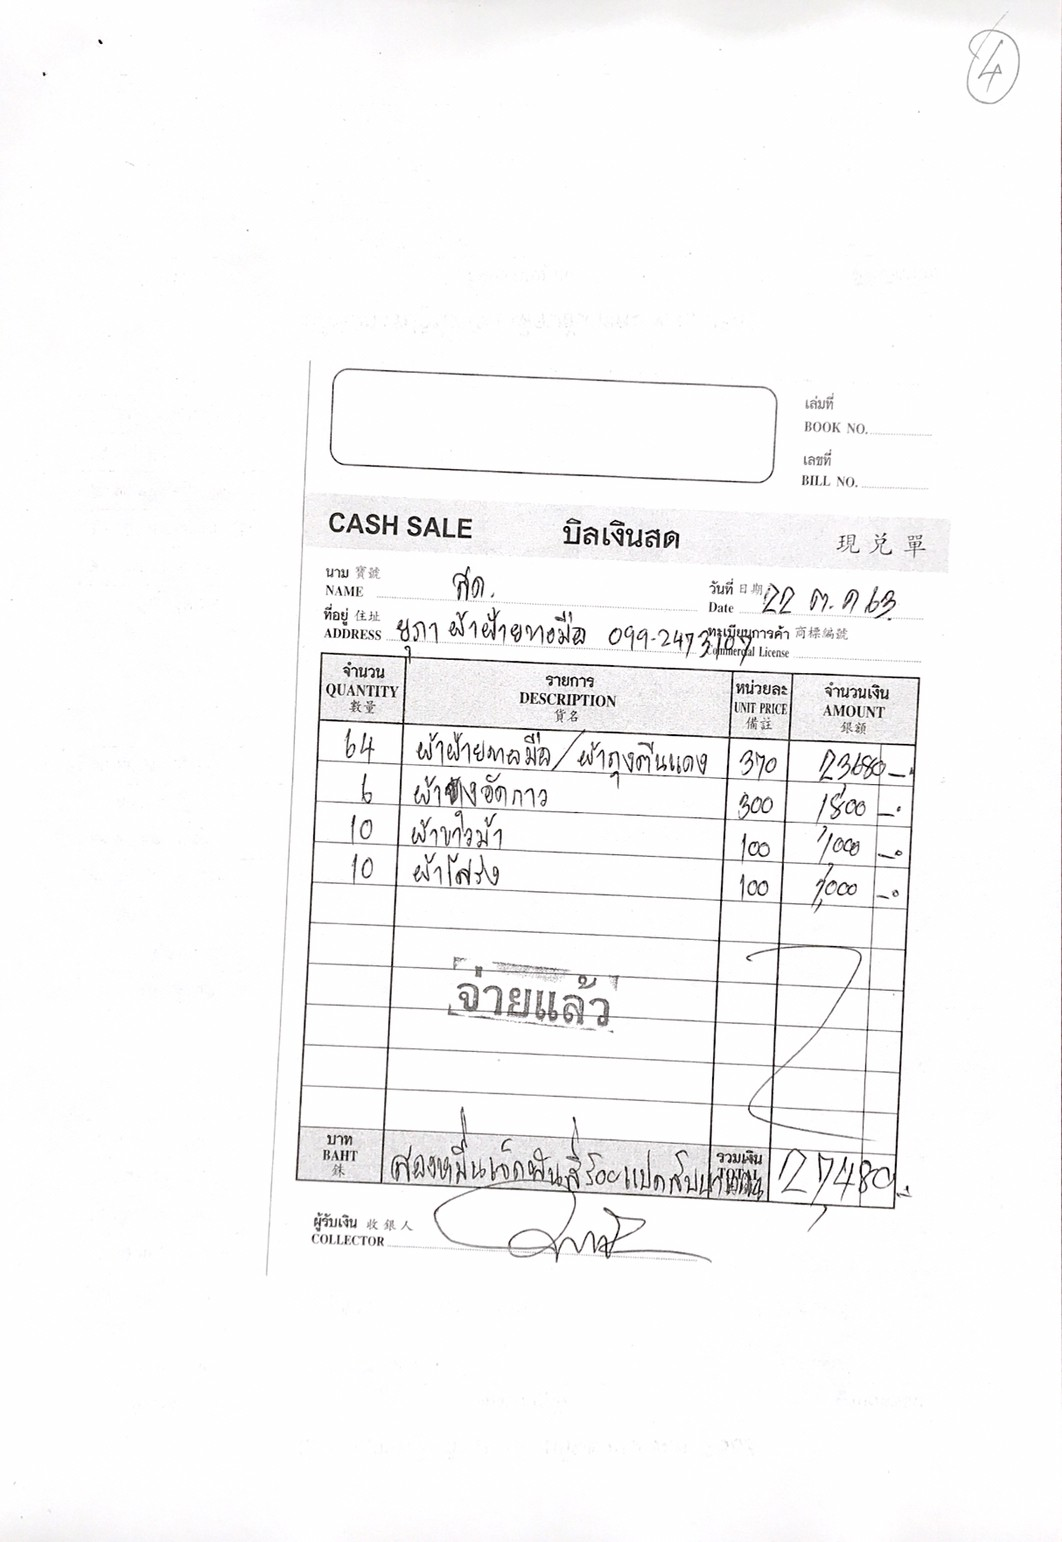 4
เล่มที่
BOOK NO.
เลขที่
BILL NO.
CASH SALE บิลเงินสด 現兌單
นาม 寶號
NAME สด.
วันที่ 日期
Date 22 ต.ค 63
ที่อยู่ 住址
ADDRESS ยุภา ผ้าฝ้ายทอมือ 099-2473107
ทะเบียนการค้า 商標編號
Commercial License
จำนวน รายการ หน่วยละ จำนวนเงิน
QUANTITY DESCRIPTION UNIT PRICE AMOUNT
數量 貨名 備註 銀額
64 ผ้าฝ้ายทอมือ/ผ้าถุงตีนแดง 370 23680 -.
6 ผ้า อัดกาว 300 1,800 -.
10 ผ้าขาวม้า 100 1,000 -.
10 ผ้าโสร่ง 100 1,000 -.
จ่ายแล้ว
บาท
BAHT สองหมื่นเจ็ดพันสี่ร้อยแปดสิบบาทถ้วน
銖
รวมเงิน
TOTAL 27,480.-
ผู้รับเงิน 收銀人
COLLECTOR